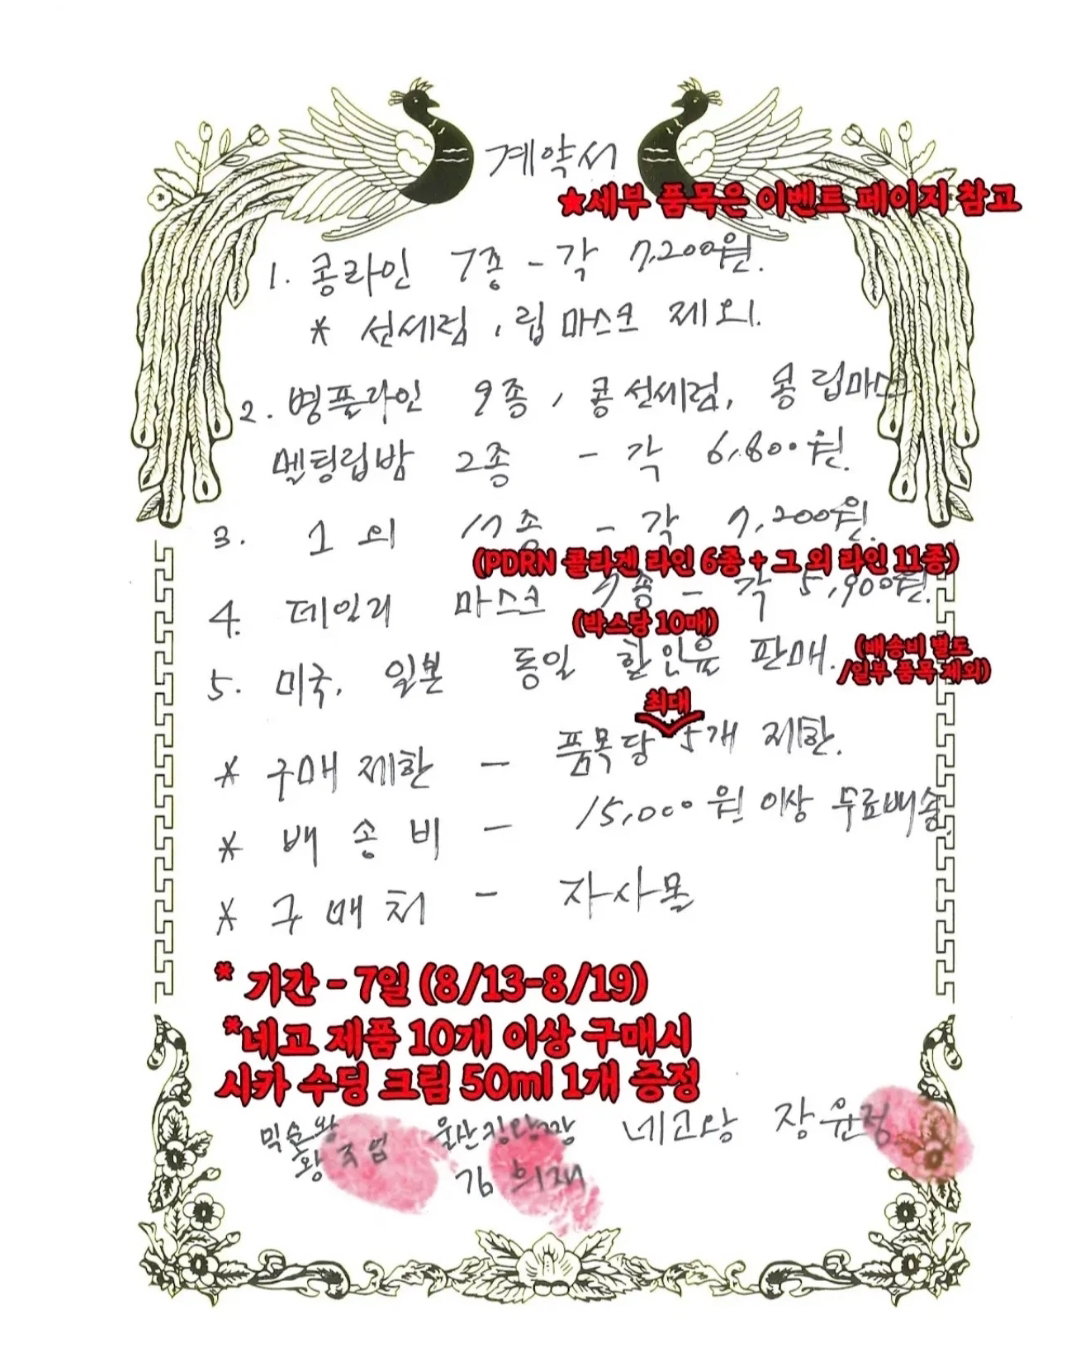 계약서
★세부 품목은 이벤트 페이지 참고
1. 콩라인 7종 - 각 7,200원.
* 선세럼, 립 마스크 제외.
2. 병풀라인 9종, 콩 선세럼, 콩 립마스크
멜팅립밤 2종 - 각 6,800원.
3. 그 외 17종 - 각 7,200원.
(PDRN 콜라겐 라인 6종 + 그 외 라인 11종)
4. 데일리 마스크 7종 - 각 5,900원.
(박스당 10매)
5. 미국, 일본 동일 할인율 판매. (배송비 별도
/일부 품목 제외)
최대
* 구매제한 - 품목당 5개 제한.
* 배송비 - 15,000원 이상 무료배송.
* 구매처 - 자사몰
* 기간 - 7일 (8/13-8/19)
*네고 제품 10개 이상 구매시
시카 수딩 크림 50ml 1개 증정
믹순왕 네고왕 장윤정
왕 김희재